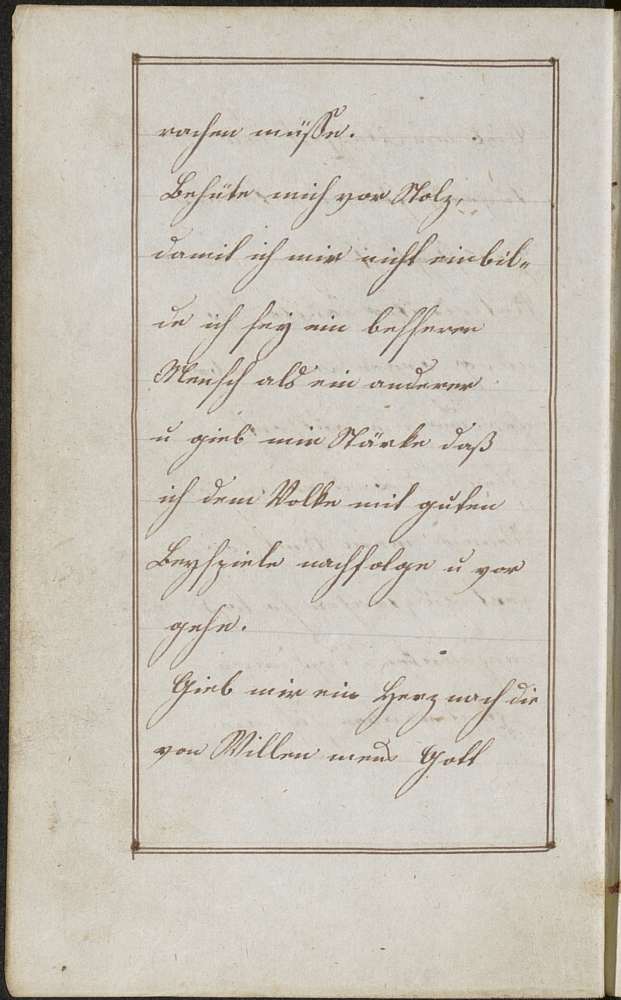 rachen müsse.
Behüte mich vor Stolz,
damit ich mir nicht einbil„
de ich sey ein besserer
Mensch als ein anderer
u gieb mir Stärke daß
ich dem Volke mit guten
Beyspiele nachfolge u vor
gehe.
Gieb mir ein Herz nach die
von Willen mein Gott